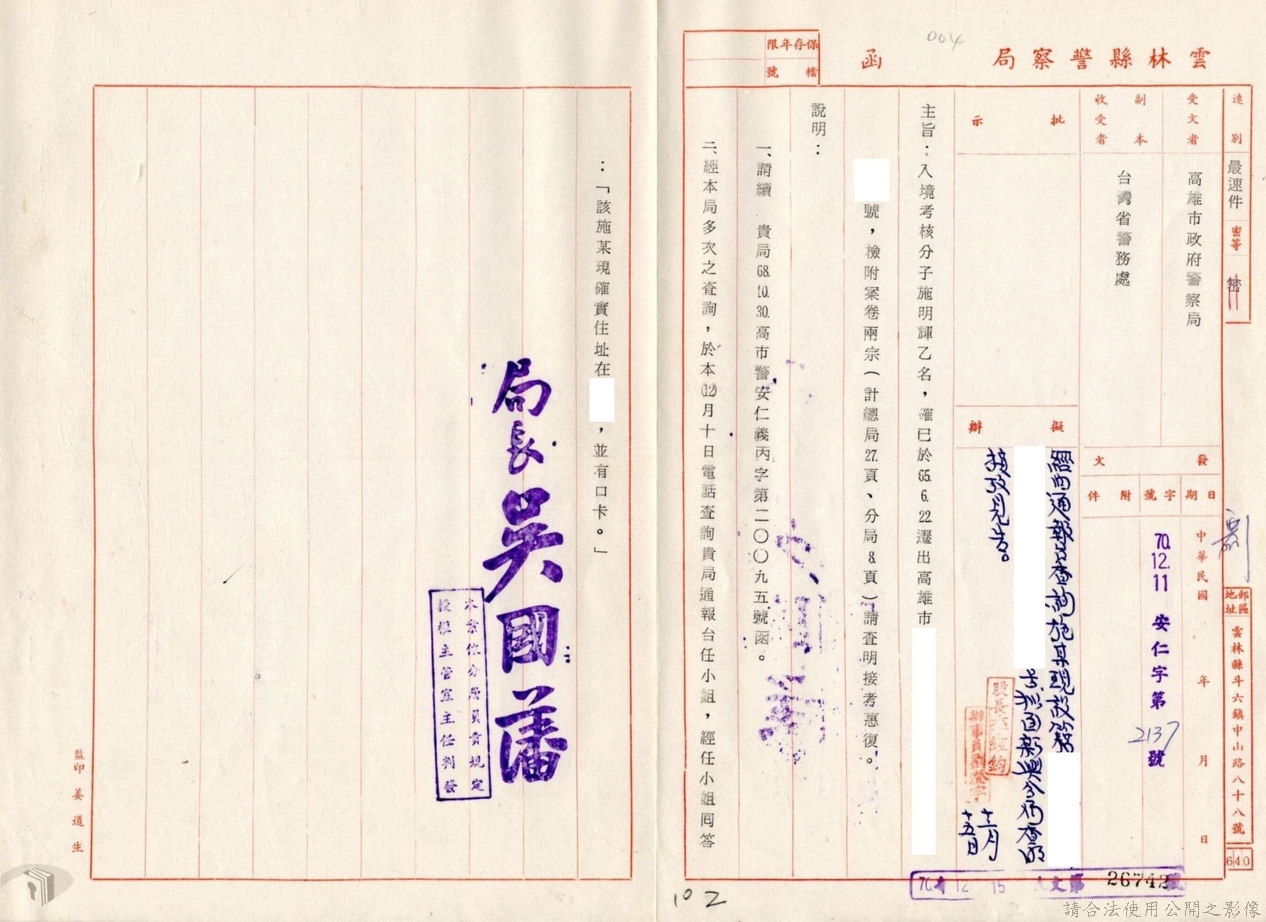 004
雲林縣警察局 函
保存年限
檔號
速別 最速件 密等 密
郵區
地址 雲林縣斗六鎮中山路八十八號
640
受文者 高雄市政府警察局
副本收受者 台灣省警務處
批示
擬辦
發文
日期 字號 附件
中華民國 年 月 日
70.12.11 安仁字第2137號
主旨：入境考核分子施明輝乙名，確已於65.6.22遷出高雄市
號，檢附案卷兩宗（計總局27.頁、分局8.頁）請查明接考惠復。
說明：
一、請續 貴局68.10.30.高市警安仁義丙字第二○○九五號函。
二、經本局多次之查詢，於本(12)月十日電話查詢貴局通報台任小姐，經任小姐囘答
：「該施某現確實住址在
，並有口卡。」
局長 吳國藩
本案依分層負責規定
授權主管室主任判發
監印 姜道生
經向通報台查詢施某現設籍
十二月
十五日
70 12 15 文第 26742號
102
請合法使用公開之影像